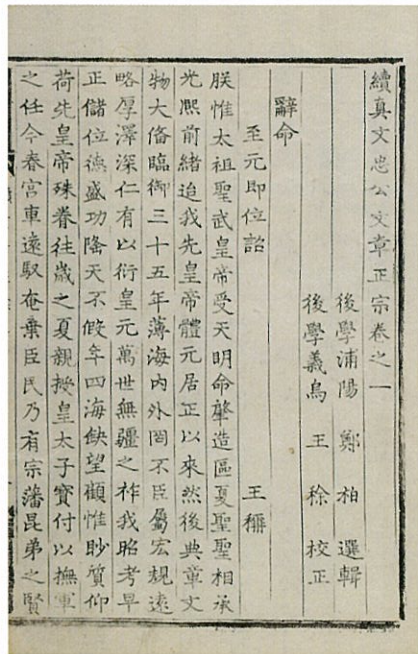 續真文忠公文章正宗卷之一
後學浦陽 鄭柏 選輯
後學義烏 王稌 校正
辭命
至元即位詔 王構
朕惟太祖聖武皇帝受天明命肇造區夏聖聖相承
光熙前緒迨我先皇帝體元居正以來然後典章文
物大俻臨御三十五年薄海內外罔不臣屬宏規遠
略厚澤深仁有以衍皇元萬世無疆之祚我昭考早
正儲位德盛功隆天不假年四海缺望顧惟眇質仰
荷先皇帝殊眷往歲之夏親授皇太子寶付以撫軍
之任今春宮車遠馭奄棄臣民乃有宗藩昆弟之賢